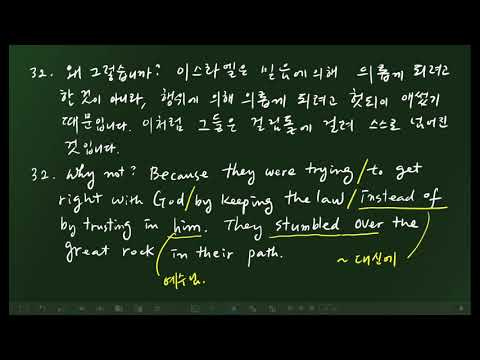 32. 왜 그렇습니까? 이스라엘은 믿음에 의해 의롭게 되려고
한 것이 아니라, 행위에 의해 의롭게 되려고 헛되이 애썼기
때문입니다. 이처럼 그들은 걸림돌에 걸려 스스로 넘어진
것입니다.
32. Why not? Because they were trying/to get
right with God/by keeping the law/instead of
by trusting in him. They stumbled over the
great rock in their path.
~대신에
예수님.